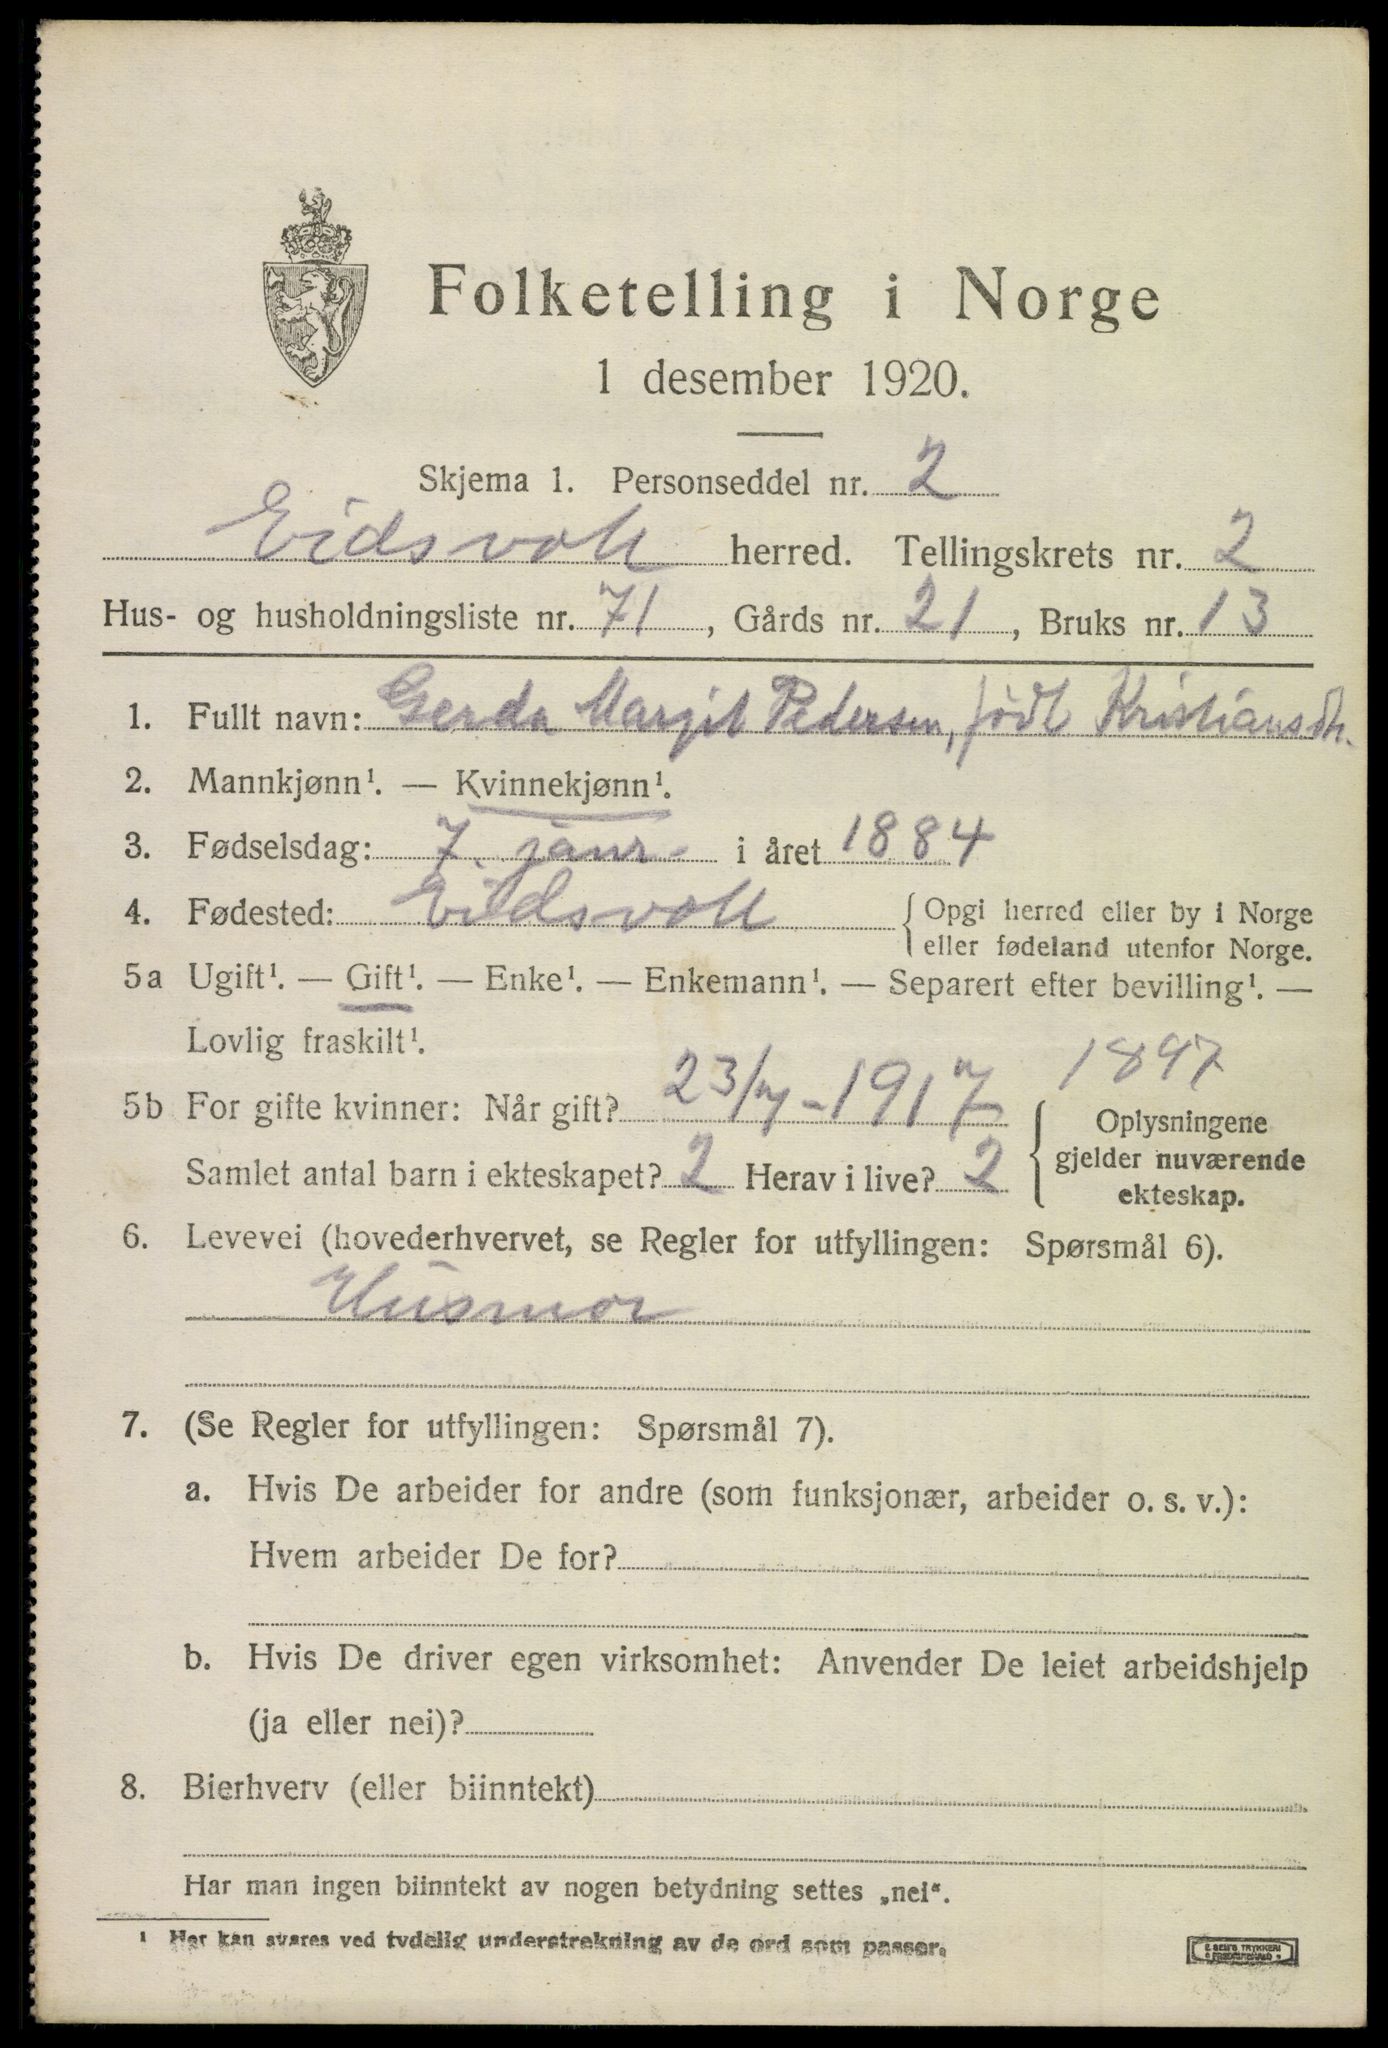 Folketelling i Norge
1 desember 1920.
Skjema 1. Personseddel nr. 2
Eidsvoll herred. Tellingskrets nr. 2
Hus- og husholdningsliste nr. 71, Gårds nr. 21, Bruks nr. 13
1. Fullt navn: Gerda Margit Pedersen, født Kristiansdtr.
2. Mannkjønn¹. — Kvinnekjønn¹.
3. Fødselsdag: 7. janr. i året 1884
4. Fødested: Eidsvoll {Opgi herred eller by i Norge
eller fødeland utenfor Norge.
5a Ugift¹. — Gift¹. — Enke¹. — Enkemann¹. — Separert efter bevilling¹. —
Lovlig fraskilt¹.
1897
5b For gifte kvinner: Når gift? 23/7-1917
Samlet antal barn i ekteskapet? 2 Herav i live? 2
{Oplysningene
gjelder nuværende
ekteskap.
6. Levevei (hovederhvervet, se Regler for utfyllingen: Spørsmål 6).
Husmor
7. (Se Regler for utfyllingen: Spørsmål 7).
a. Hvis De arbeider for andre (som funksjonær, arbeider o. s. v.):
Hvem arbeider De for?
b. Hvis De driver egen virksomhet: Anvender De leiet arbeidshjelp
(ja eller nei)?
8. Bierhverv (eller biinntekt)
Har man ingen biinntekt av nogen betydning settes „nei“.
¹ Her kan svares ved tydelig understrekning av de ord som passer.